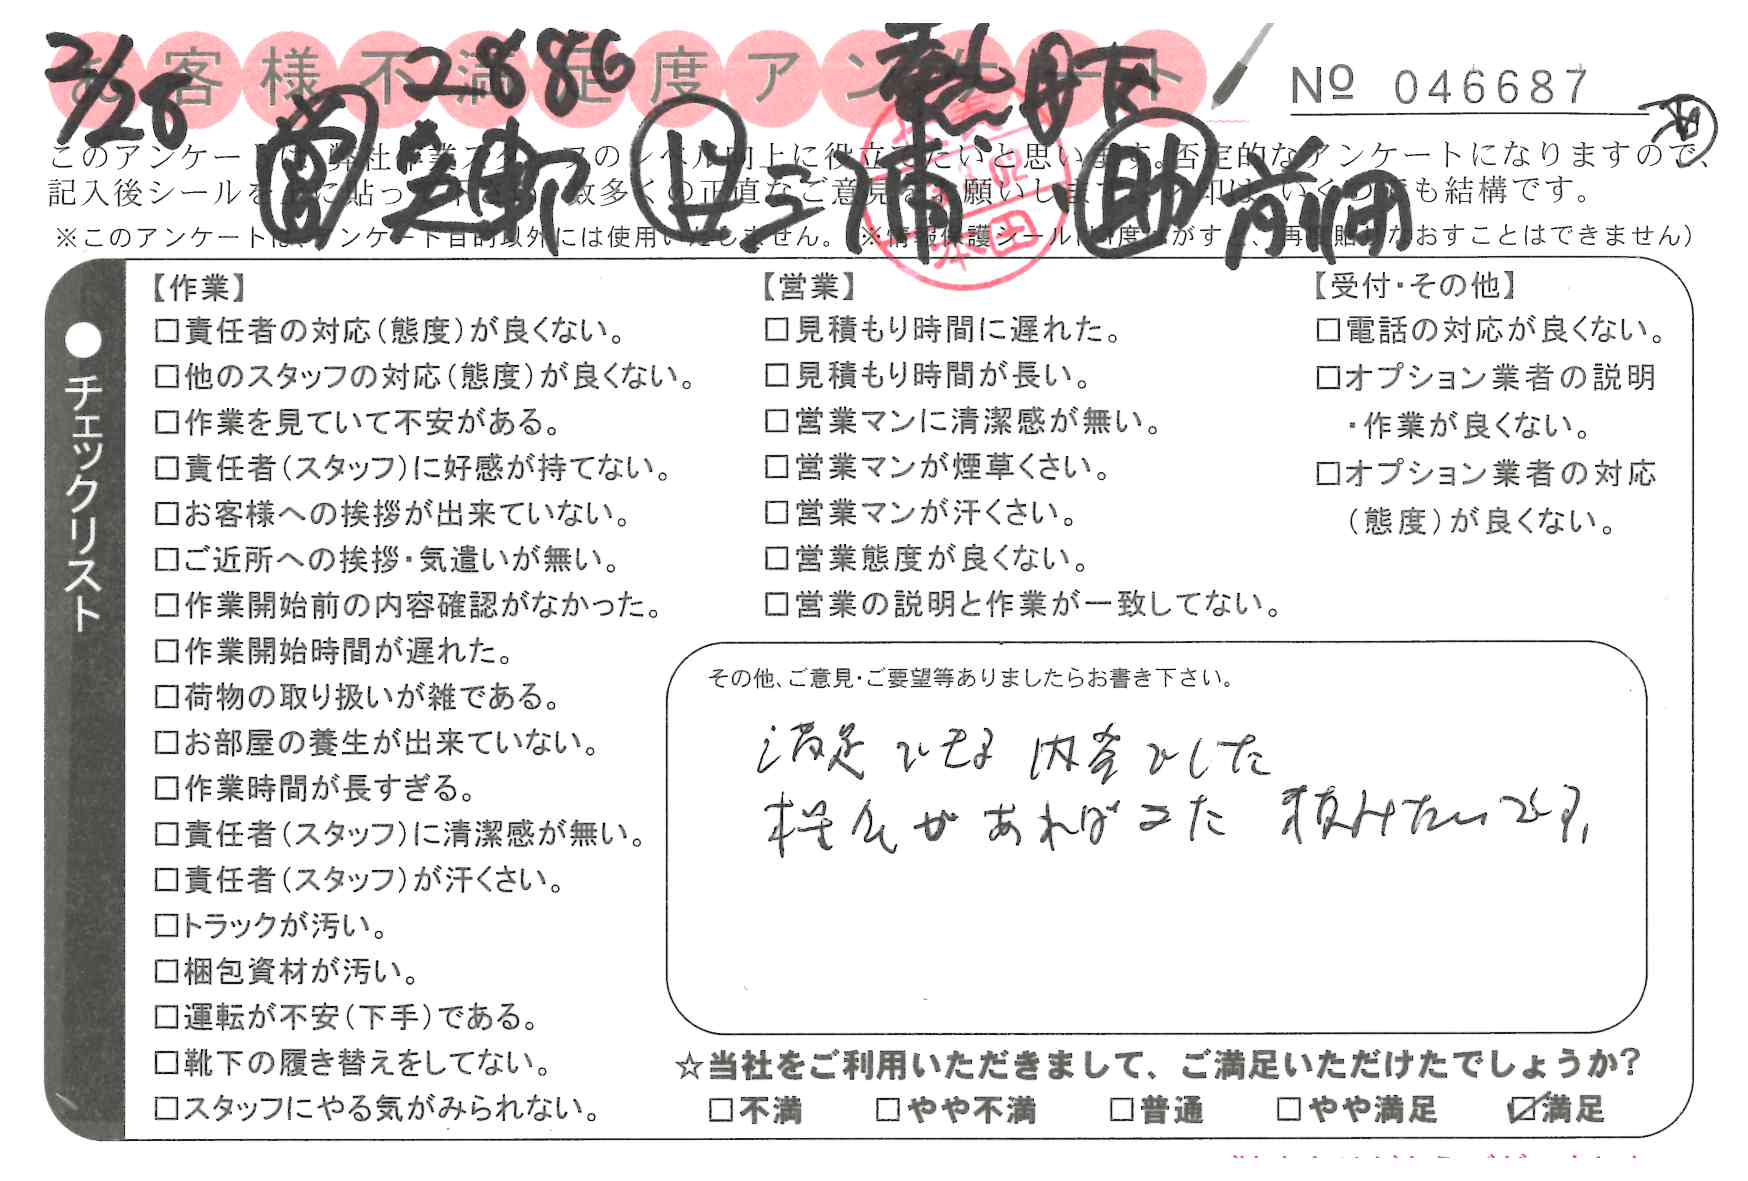 お客様不満足度アンケート
2/28 2886
Nº 046687
このアンケートは、弊社作業スタッフのレベル向上に役立てたいと思います。否定的なアンケートになりますので、
記入後シールを上に貼って下さい。数多くの正直なご意見をお願いします。
㊁三浦 前田
※このアンケートは、アンケート目的以外には使用いたしません。(※情報保護シールは1度はがすと、再度貼りなおすことはできません)
●チェックリスト
【作業】
□責任者の対応(態度)が良くない。
□他のスタッフの対応(態度)が良くない。
□作業を見ていて不安がある。
□責任者(スタッフ)に好感が持てない。
□お客様への挨拶が出来ていない。
□ご近所への挨拶・気遣いが無い。
□作業開始前の内容確認がなかった。
□作業開始時間が遅れた。
□荷物の取り扱いが雑である。
□お部屋の養生が出来ていない。
□作業時間が長すぎる。
□責任者(スタッフ)に清潔感が無い。
□責任者(スタッフ)が汗くさい。
□トラックが汚い。
□梱包資材が汚い。
□運転が不安(下手)である。
□靴下の履き替えをしてない。
□スタッフにやる気がみられない。
【営業】
□見積もり時間に遅れた。
□見積もり時間が長い。
□営業マンに清潔感が無い。
□営業マンが煙草くさい。
□営業マンが汗くさい。
□営業態度が良くない。
□営業の説明と作業が一致してない。
【受付・その他】
□電話の対応が良くない。
□オプション業者の説明
・作業が良くない。
□オプション業者の対応
(態度)が良くない。
その他、ご意見・ご要望等ありましたらお書き下さい。
満足できる内容でした
機会があればまた頼みたいです。
☆当社をご利用いただきまして、ご満足いただけたでしょうか?
□不満 □やや不満 □普通 □やや満足 ☑満足